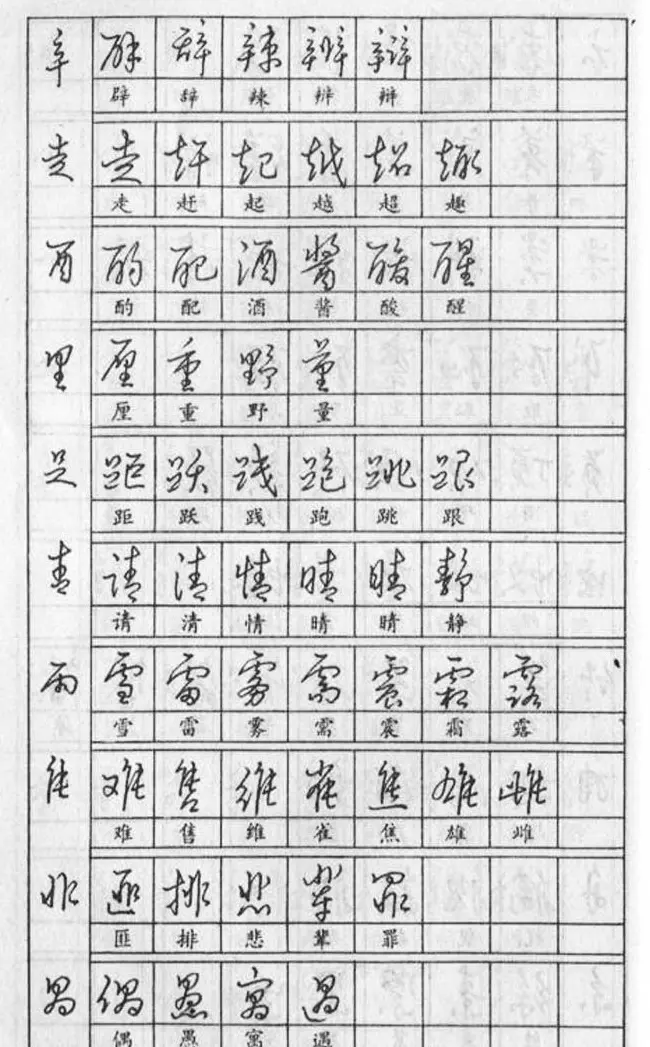 辛 辟 辞 辣 辨 辩
辟 辞 辣 辨 辩
走 走 赶 起 越 超 趣
走 赶 起 越 超 趣
酉 酌 配 酒 酱 酸 醒
酌 配 酒 酱 酸 醒
里 厘 重 野 量
厘 重 野 量
足 距 跃 践 跑 跳 跟
距 跃 践 跑 跳 跟
青 请 清 情 晴 睛 静
请 清 情 晴 睛 静
雨 雪 雷 雾 需 震 霜 露
雪 雷 雾 需 震 霜 露
隹 难 售 维 雀 焦 雄 雌
难 售 维 雀 焦 雄 雌
非 匪 排 悲 辈 罪
匪 排 悲 辈 罪
禺 偶 愚 寓 遇
偶 愚 寓 遇